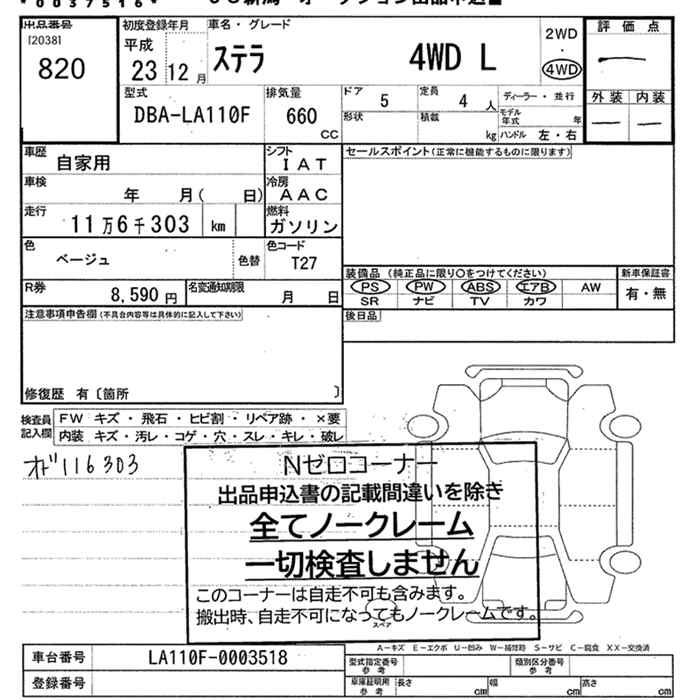 *00375 1 6*
出品番号
[2038]
820
初度登録年月
平成
23 12 月
車名・グレード
ステラ 4WD L
2WD
・
4WD
評価点
外装 内装
型式
DBA-LA110F
排気量
660
CC
ドア
5
定員
4 人
ディーラー・並行
形状
積載
kg
モデル年式 年
ハンドル 左・右
車歴
自家用
シフト
IAT
セールスポイント(正常に機能するものに限ります)
車検
年 月( 日)
冷房
AAC
走行
11万6千303 km
燃料
ガソリン
色
ベージュ
色替
色コード
T27
装備品(純正品に限り○をつけてください)
新車保証書
PS PW ABS エアB AW
SR ナビ TV カワ
有・無
R券
8,590 円
名変通知期限
月 日
注意事項申告欄(不具合内容等は具体的に記入して下さい)
後日品
修復歴 有〔箇所 〕
検査員記入欄
FW キズ・飛石・ヒビ割・リペア跡・×要
内装 キズ・汚レ・コゲ・穴・スレ・キレ・破レ
オド116303
Nゼロコーナー
出品申込書の記載間違いを除き
全てノークレーム
一切検査しません
このコーナーは自走不可も含みます。
搬出時、自走不可になってもノークレームです。
スペア
A-キズ E-エクボ U-凹み W-補修跡 S-サビ C-腐食 XX-交換済
車台番号
LA110F-0003518
登録番号
型式指定番号
参考
類別区分番号
参考
車庫証明用
参考
長さ cm 幅 cm 高さ cm